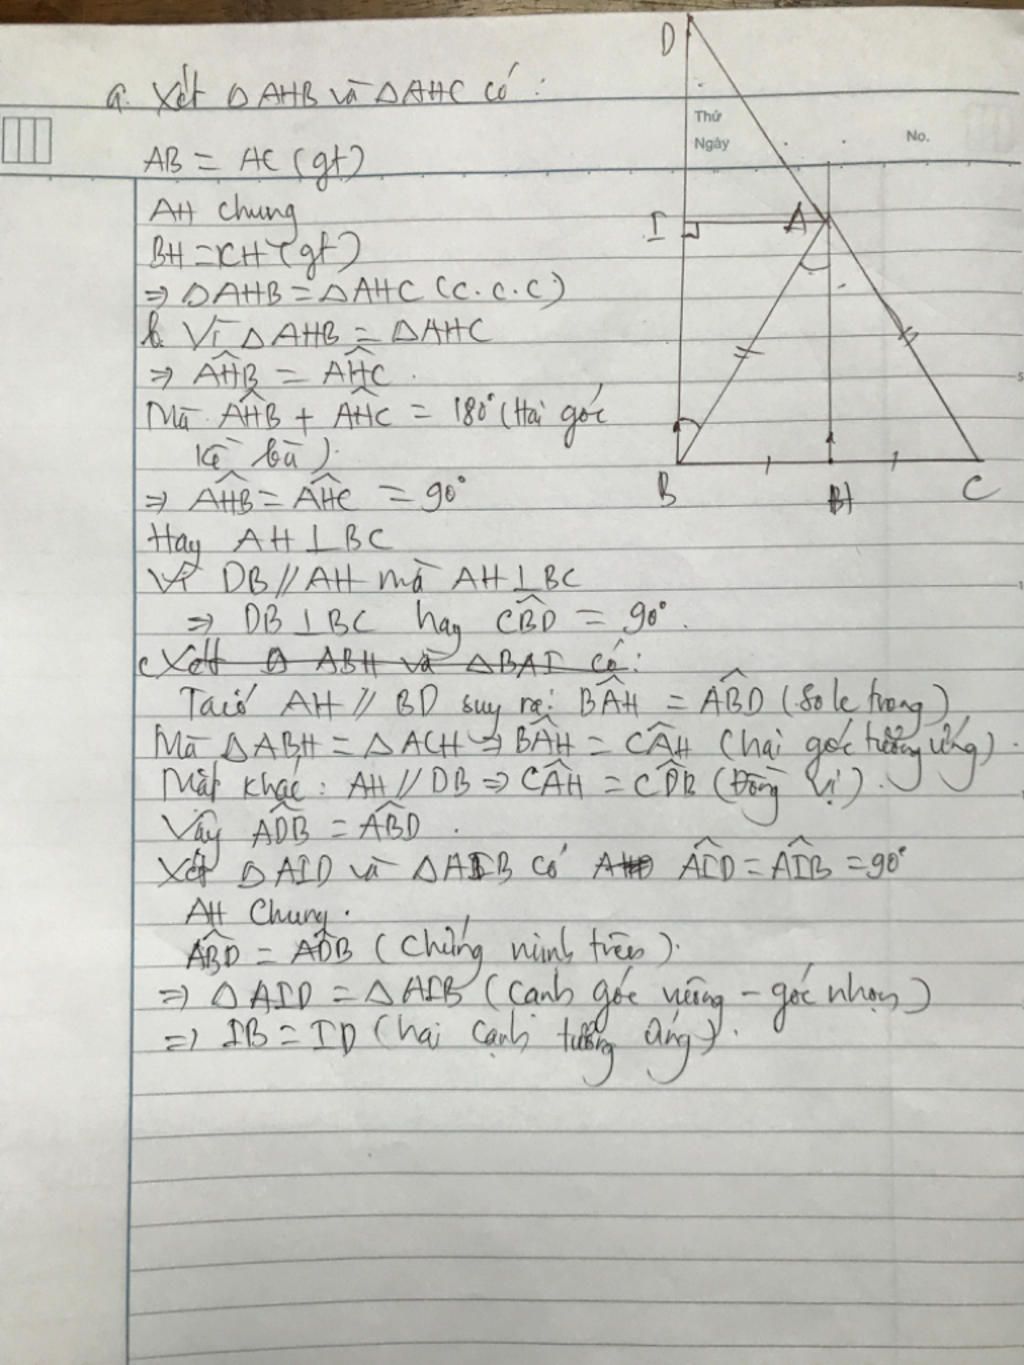 a. Xét Δ AHB và Δ AHC có :
Thứ
Ngày
No.
AB = AC (gt)
AH chung
BH = CH (gt)
⇒ Δ AHB = Δ AHC (c.c.c)
b. Vì Δ AHB = Δ AHC
⇒ AĤB = AĤC .
Mà AĤB + AĤC = 180° (Hai góc
kề bù).
⇒ AĤB = AĤC = 90°
Hay AH ⊥ BC
Vì DB // AH mà AH ⊥ BC
⇒ DB ⊥ BC hay CB̂D = 90° .
c Xét Δ ABH và Δ BAI có :
Ta có AH // BD suy ra: BÂH = AB̂D (So le trong)
Mà Δ ABH = Δ ACH ⇒ BÂH = CÂH (hai góc tương ứng) .
Mặt khác : AH // DB ⇒ CÂH = CD̂B (Đồng vị) .
Vậy AD̂B = AB̂D .
Xét Δ AID và Δ AIB có AÎD = AÎB = 90°
AH Chung .
AB̂D = AD̂B (chứng minh trên).
⇒ Δ AID = Δ AIB (cạnh góc vuông - góc nhọn)
⇒ IB = ID (hai cạnh tương ứng) .
D
I
A
B
H
C